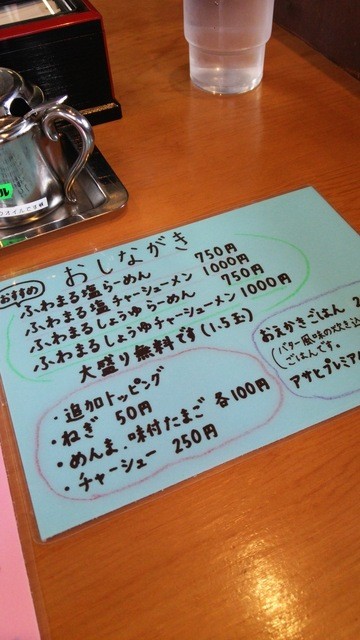 おしながき
おすすめ
ふわまる塩らーめん 750円
ふわまる塩チャーシューメン 1000円
ふわまるしょうゆらーめん 750円
ふわまるしょうゆチャーシューメン 1000円
大盛り無料です(1.5玉)
・追加トッピング
・ねぎ 50円
・めんま・味付たまご 各100円
・チャーシュー 250円
おえかきごはん 2
(バター風味の炊き込
ごはんです。
アサヒプレミア